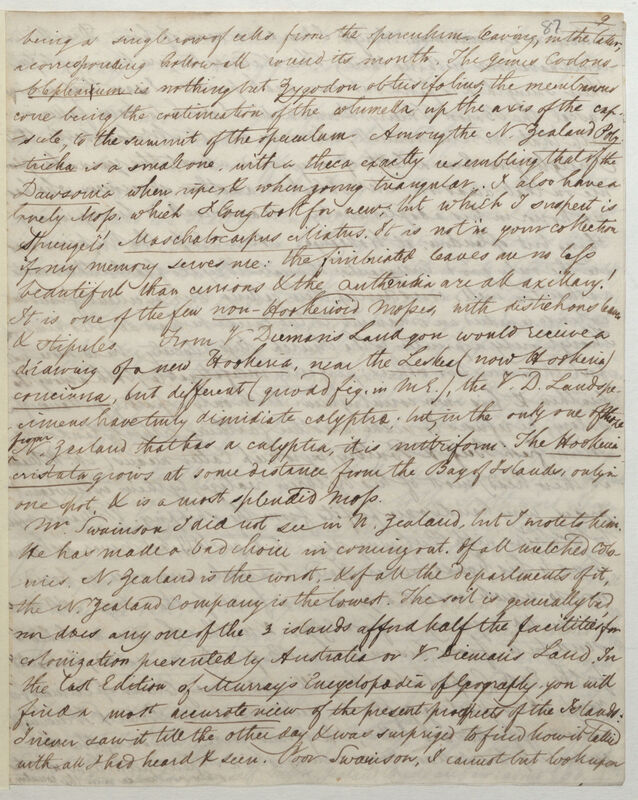 9
87
being a single row of cells from the operculum leaving, in the latter,
a corresponding hollow all round its mouth. The Genus Codono-
blepharum is nothing but Zygodon obtusifolius, the membranous
cone being the continuation of the columella up the axis of the cap-
sule, to the summit of the operculum. Among the N. Zealand Poly-
tricha is a small one, with a theca exactly resembling that of the
Dawsonia when ripe & when young triangular. I also have a
lovely Moss, which I long took for new, but which I suspect is
Sprengel's Maschalocarpus ciliatus. It is not in your collection
if my memory serves me: the fimbriated leaves are no less
beautiful than curious & the antheridia are all axillary!
It is one of the few non-Hookerioid Mosses, with distichous leaves
& stipules. From V. Diemans Land you would receive a
drawing of a new Hookeria, near the Leskea (now Hookeria)
concinna, but different (quoad fig. in M.E.), the V. D. Land spe-
cimens have truly dimidiate calyptræ, but, in the only one of those
from
N. Zealand that has a calyptra, it is mitriform. The Hookeria
cristata grows at some distance from the Bay of Islands, only in
one spot, & is a most splendid Moss.
Mr. Swainson I did not see in N. Zealand, but I wrote to him.
He has made a bad choice in coming out. Of all wretched Colo-
nies, N. Zealand is the worst, & of all the departments of it,
the N. Zealand Company is the lowest. The soil is generally bad
nor does any one of the 3 islands afford half the facilities for
colonization presented by Australia or V. Dieman's Land. In
the last Edition of Murray's Encyclopædia of Geography, you will
find a most accurate view of the present prospects of the Islands.
I never saw it till the other day & was surprized to find how it tallied
with all I had heard & seen. Poor Swainson, I cannot but look upon